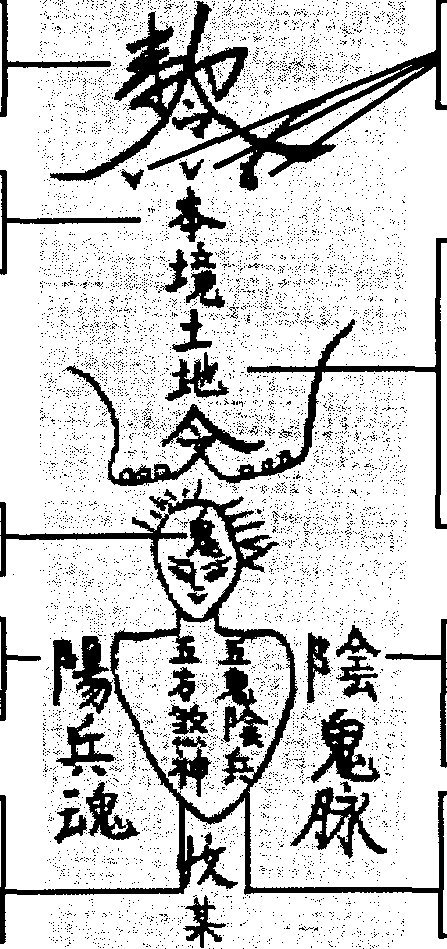 勅令
本境土地令
鬼
陰鬼脉
五鬼陰兵
五方煞神
陽兵魂
收某